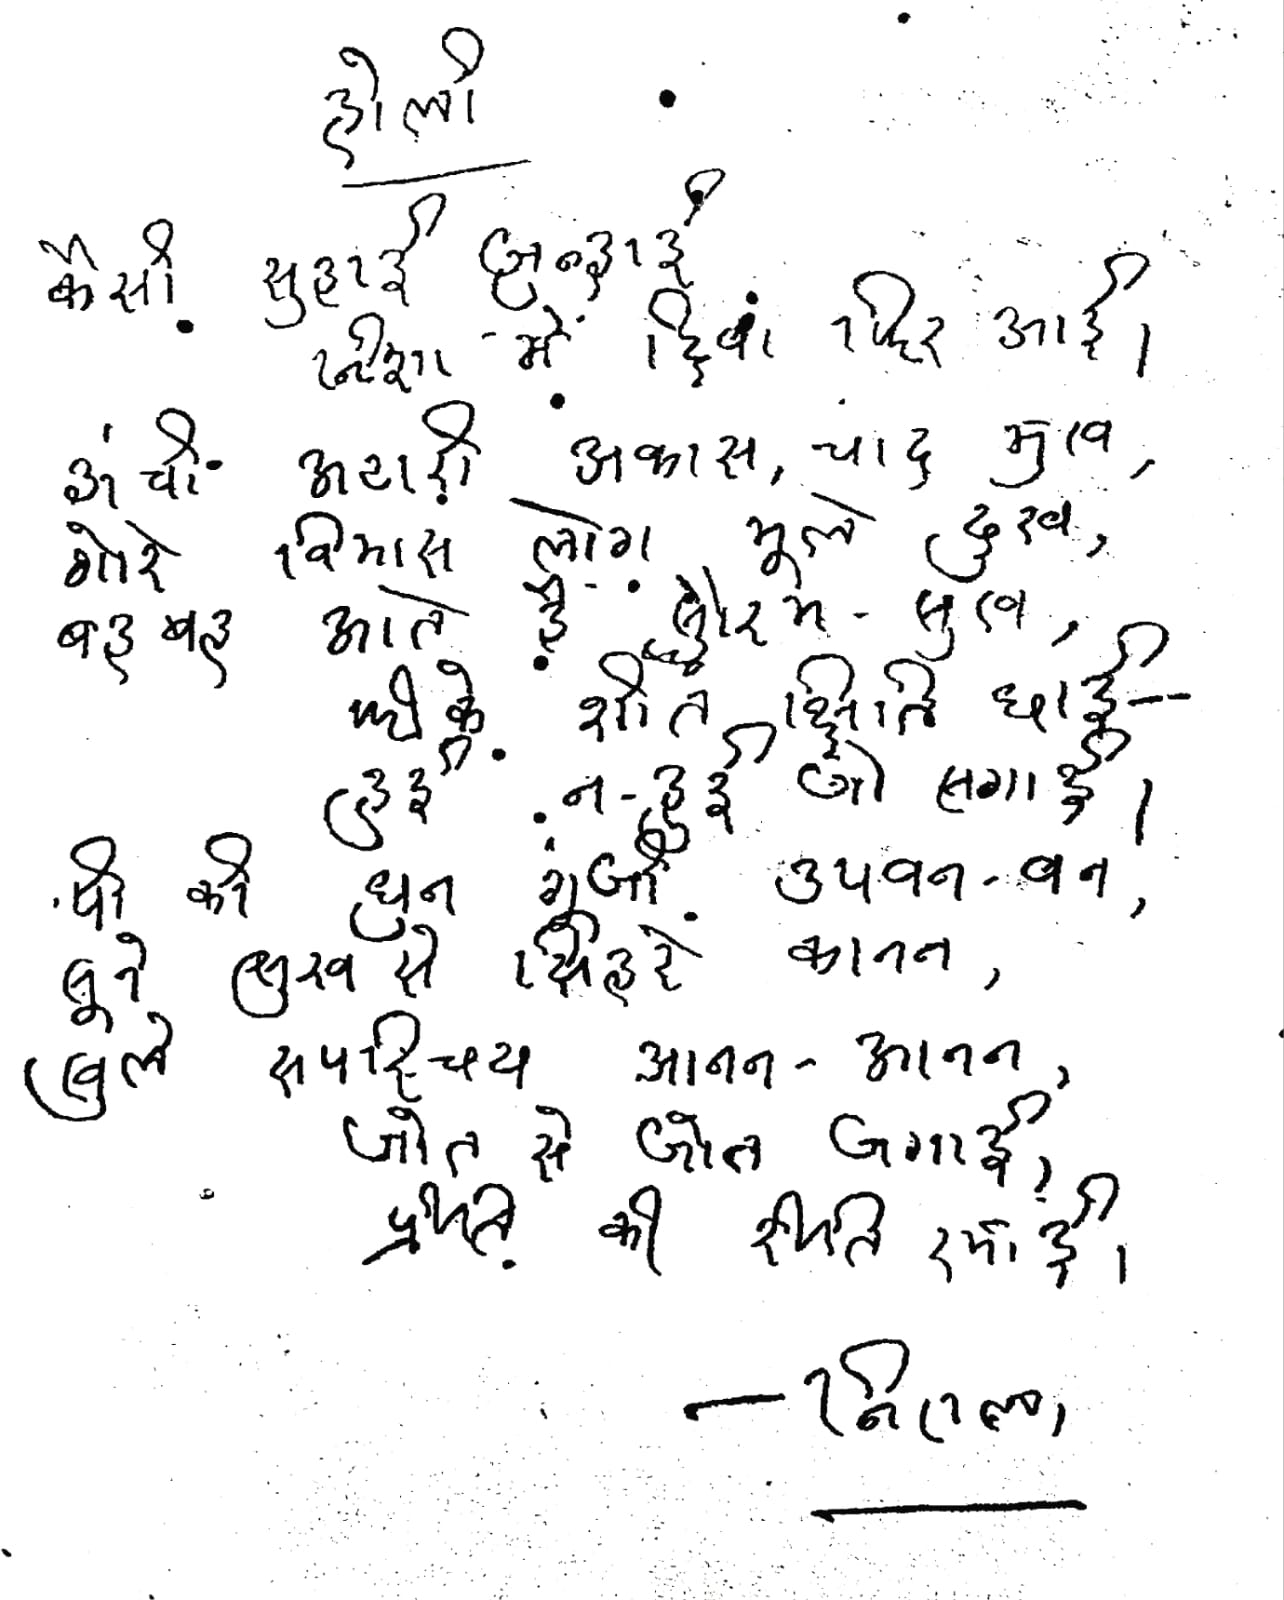 होली
कैसी सुहाई जुन्हाई
निशा में दिवा फिर आई।
ऊंची अटारी अकास, चांद मुख,
गोरे विभास लोग भूले दुख,
बह बह आते हैं सौरभ-सुख,
फीके शीत क्षिति छाई--
हुई न-हुई जो सगाई।
पी की धुन गूंजी उपवन-वन,
सूने सुख से सिहरे कानन,
खुले सपरिचय आनन-आनन,
जोत से जोत जगाई,
प्रीति की रीति रमाई।
— निराला